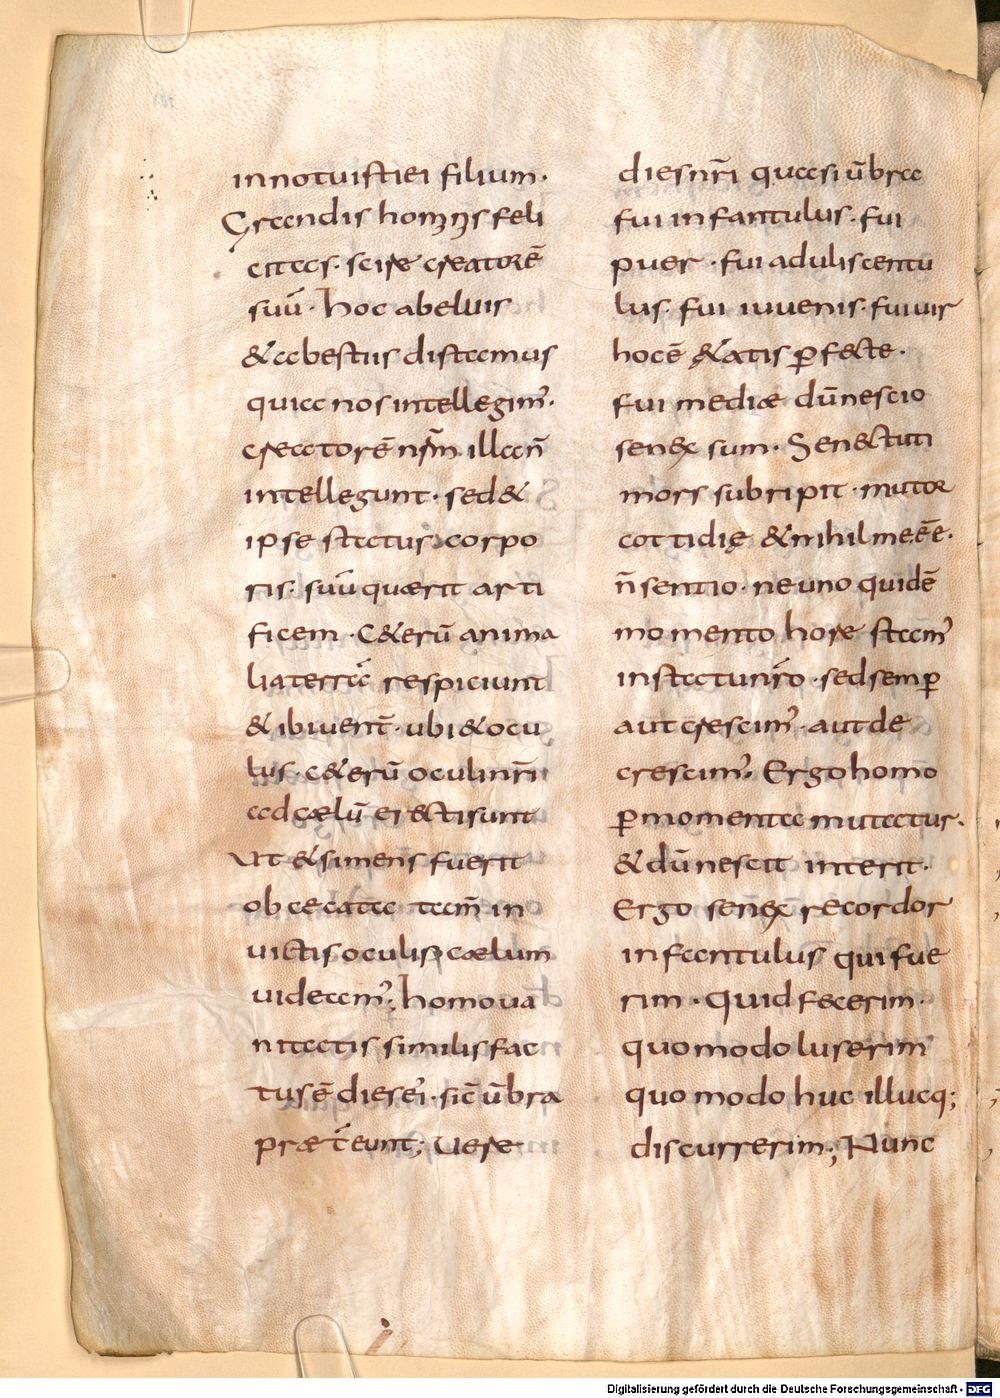 innotuisti ei filium·
Grandis hominis feli
citas· scire creatorē
suū· hoc a beluis
& a bestiis distamus
quia nos intellegim᾽·
creatorē nr̄m illa n̄
intellegunt· sed &
ipse status corpo
ris· suū quærit arti
ficem· C&erū anima
lia terrā respiciunt
& ibi uent̄· ubi & ocu
lus· c&erū oculi nr̄i
ad cælū erecti sunt
Ut & si mens fuerit
obcecata tam̄ in
uictis oculis cælum
uideam᾽; homo ua
nitatis similis fac
tus ē dies ei᾽· sic̄ ūbra
prætēeunt; Uere
dies nr̄i quasi ūbra
fui infantulus· fui
puer· fui aduliscentu
lus· fui iuuenis· fui uir
hoc ē &atis ꝑf&te·
fui mediæ dū nescio
senex sum· Senectuti
mors subripit· mutor
cottidię & nihil me eē·
n̄ sentio· ne uno quidē
momento hore stam᾽
in statu nr̄o· sed semꝑ
aut crescim᾽· aut de
crescim᾽· Ergo homo
ꝑ momenta mutatur·
& dū nescit interit·
Ergo senex recordor
infantulus qui fue
rim· Quid fecerim·
quomodo luserim
quomodo huc illucq;
discurrerim; Nunc
Digitalisierung gefördert durch die Deutsche Forschungsgemeinschaft - DFG